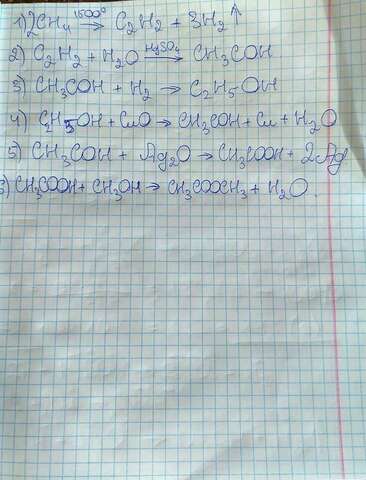 1) 2CH₄ 1500° → C₂H₂ + 3H₂↑
2) C₂H₂ + H₂O H₂SO₄ → CH₃COH
3) CH₃COH + H₂ → C₂H₅OH
4) C₂H₅OH + CuO → CH₃COH + Cu + H₂O
5) CH₃COH + Ag₂O → CH₃COOH + 2Ag
3) CH₃COOH + CH₃OH → CH₃COOCH₃ + H₂O.